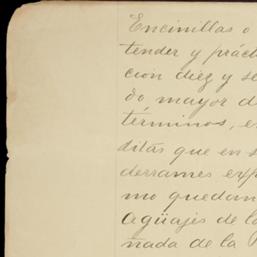 Encinillas o
tender y práct
cion diez y se
do mayor d
términos, e
ditás que en s
derrames exp
mo quedan
Agüajes de la
ñada de la